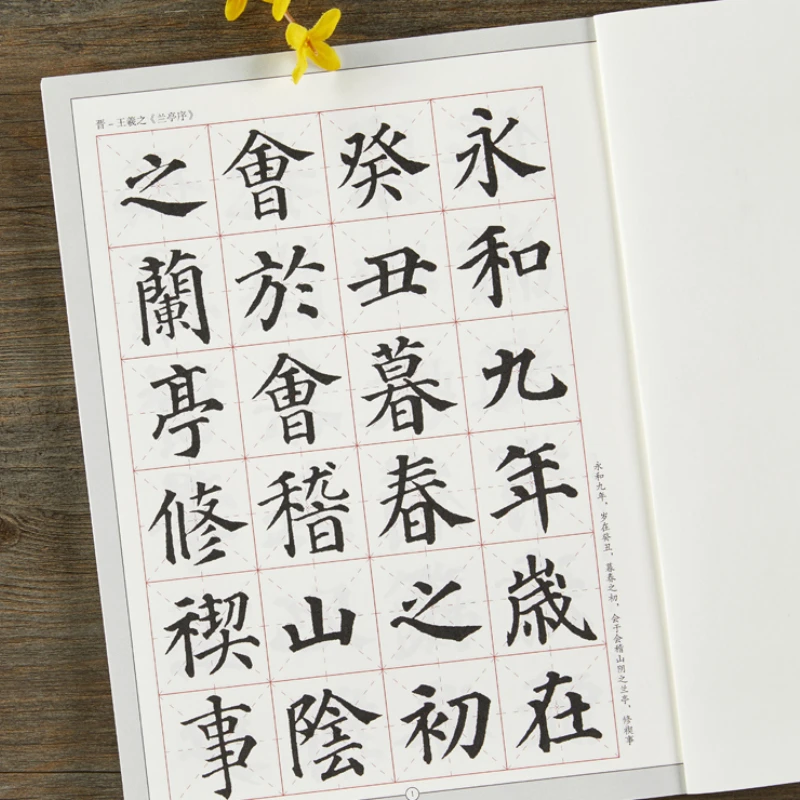 晋 - 王羲之《兰亭序》
永和九年歲在
癸丑暮春之初
會於會稽山陰
之蘭亭修禊事
永和九年，岁在癸丑，暮春之初，会于会稽山阴之兰亭，修禊事
1